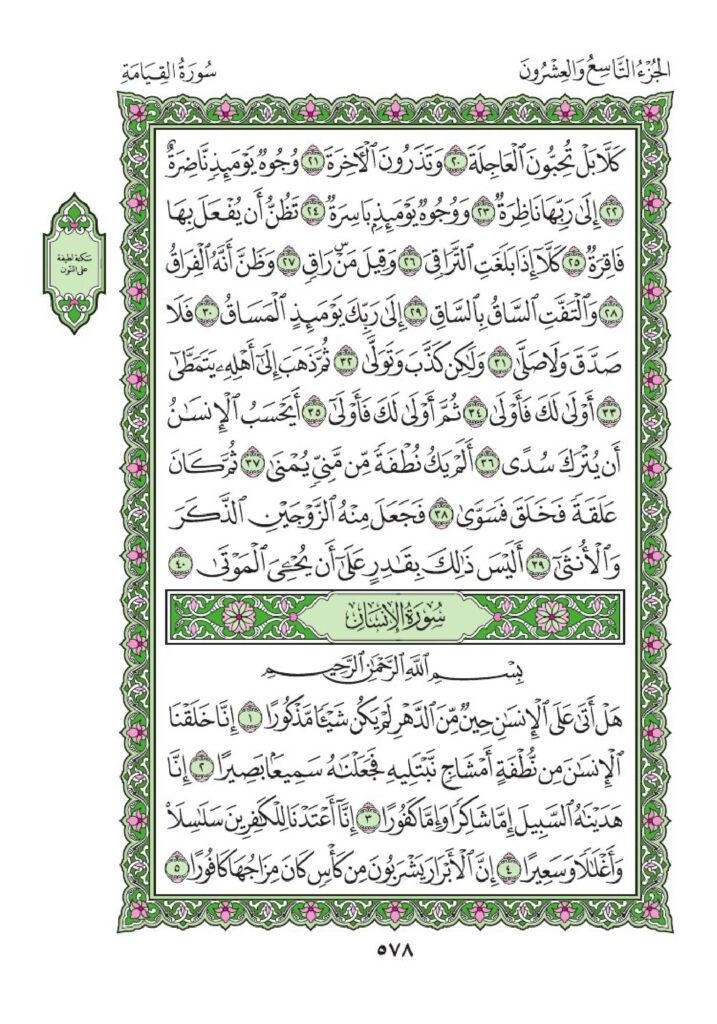 الجُزْءُ التَّاسِعُ وَالعِشْرُونَ
سُورَةُ القِيَامَةِ
كَلَّا بَلْ تُحِبُّونَ ٱلْعَاجِلَةَ ٢٠ وَتَذَرُونَ ٱلْأٓخِرَةَ ٢١ وُجُوهٌ يَوْمَئِذٖ نَّاضِرَةٌ
٢٢ إِلَىٰ رَبِّهَا نَاظِرَةٌ ٢٣ وَوُجُوهٌ يَوْمَئِذِۭ بَاسِرَةٌ ٢٤ تَظُنُّ أَن يُفْعَلَ بِهَا
فَاقِرَةٌ ٢٥ كَلَّآ إِذَا بَلَغَتِ ٱلتَّرَاقِيَ ٢٦ وَقِيلَ مَنْۜ رَاقٖ ٢٧ وَظَنَّ أَنَّهُ ٱلْفِرَاقُ
٢٨ وَٱلْتَفَّتِ ٱلسَّاقُ بِٱلسَّاقِ ٢٩ إِلَىٰ رَبِّكَ يَوْمَئِذٍ ٱلْمَسَاقُ ٣٠ فَلَا
صَدَّقَ وَلَا صَلَّىٰ ٣١ وَلَٰكِن كَذَّبَ وَتَوَلَّىٰ ٣٢ ثُمَّ ذَهَبَ إِلَىٰٓ أَهْلِهِۦ يَتَمَطَّىٰٓ
٣٣ أَوْلَىٰ لَكَ فَأَوْلَىٰ ٣٤ ثُمَّ أَوْلَىٰ لَكَ فَأَوْلَىٰٓ ٣٥ أَيَحْسَبُ ٱلْإِنسَٰنُ
أَن يُتْرَكَ سُدًى ٣٦ أَلَمْ يَكُ نُطْفَةٗ مِّن مَّنِيّٖ يُمْنَىٰ ٣٧ ثُمَّ كَانَ
عَلَقَةٗ فَخَلَقَ فَسَوَّىٰ ٣٨ فَجَعَلَ مِنْهُ ٱلزَّوْجَيْنِ ٱلذَّكَرَ
وَٱلْأُنثَىٰٓ ٣٩ أَلَيْسَ ذَٰلِكَ بِقَٰدِرٍ عَلَىٰٓ أَن يُحْـِۧيَ ٱلْمَوْتَىٰ ٤٠
سُورَةُ الإِنسَانِ
بِسْمِ ٱللَّهِ ٱلرَّحْمَٰنِ ٱلرَّحِيمِ
هَلْ أَتَىٰ عَلَى ٱلْإِنسَٰنِ حِينٌ مِّنَ ٱلدَّهْرِ لَمْ يَكُن شَيْـٔٗا مَّذْكُورًا ١ إِنَّا خَلَقْنَا
ٱلْإِنسَٰنَ مِن نُّطْفَةٍ أَمْشَاجٖ نَّبْتَلِيهِ فَجَعَلْنَٰهُ سَمِيعَۢا بَصِيرًا ٢ إِنَّا
هَدَيْنَٰهُ ٱلسَّبِيلَ إِمَّا شَاكِرٗا وَإِمَّا كَفُورًا ٣ إِنَّآ أَعْتَدْنَا لِلْكَٰفِرِينَ سَلَٰسِلَا۟
وَأَغْلَٰلٗا وَسَعِيرًا ٤ إِنَّ ٱلْأَبْرَارَ يَشْرَبُونَ مِن كَأْسٖ كَانَ مِزَاجُهَا كَافُورًا ٥
سكتة لطيفة
على النون
٥٧٨